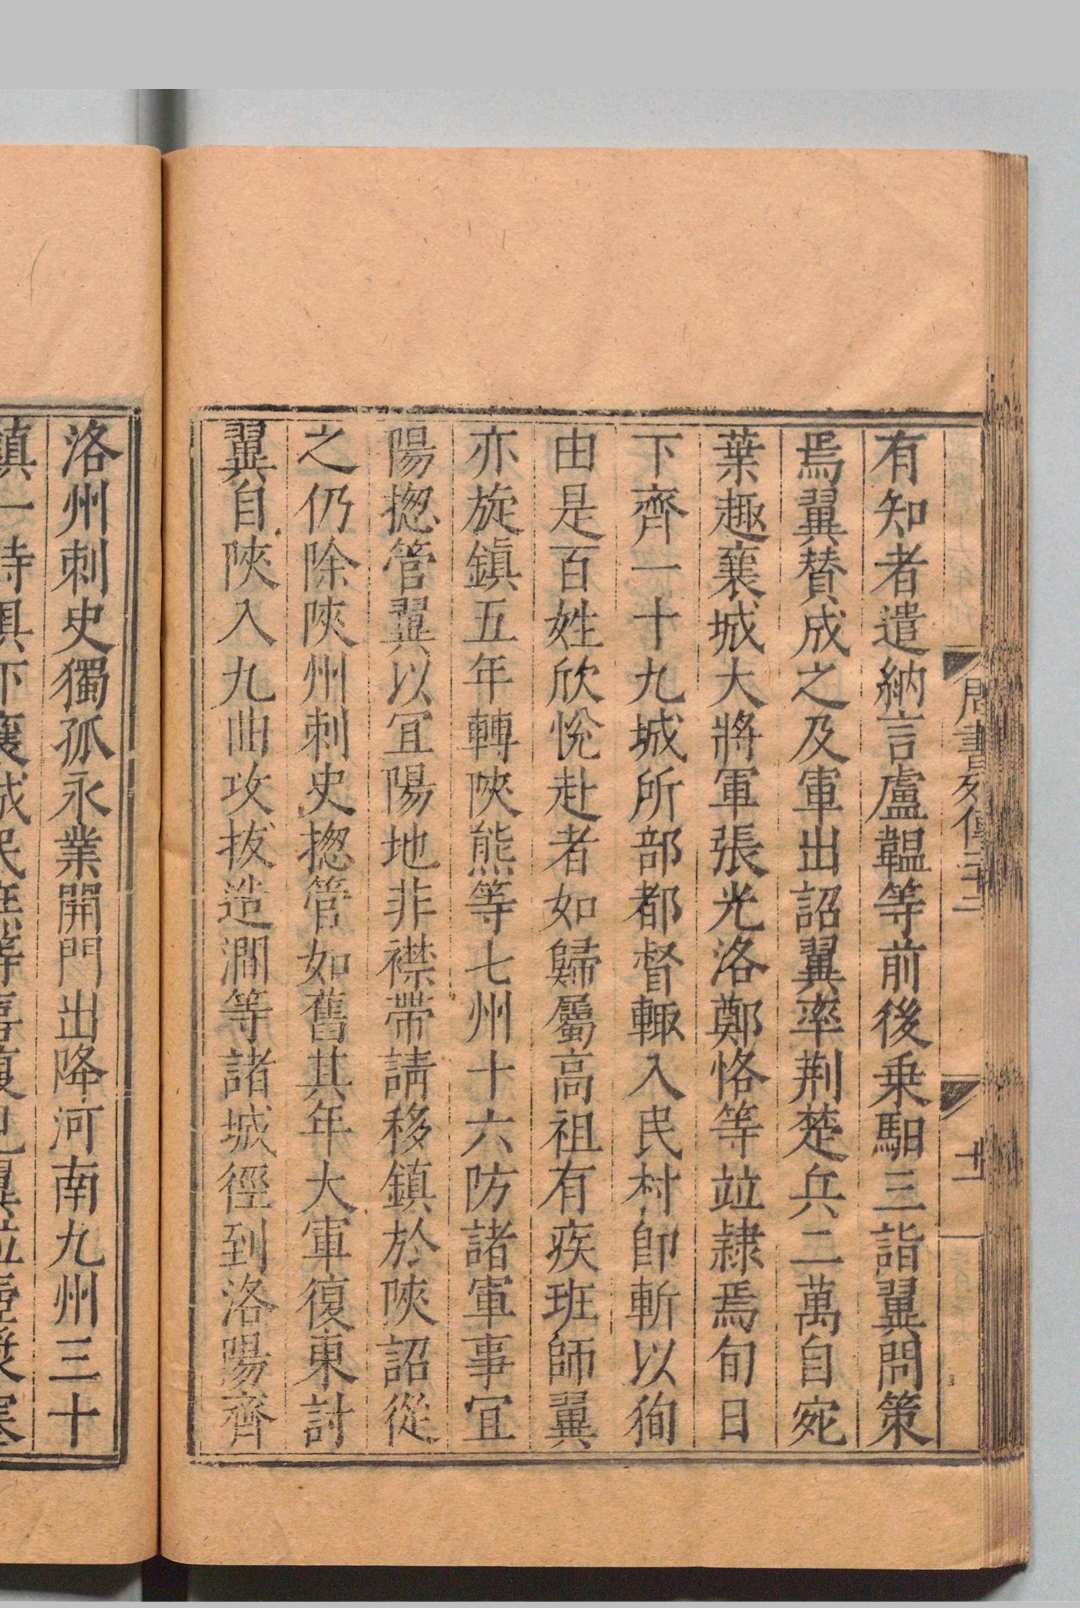 周書列傳二十二
十一
有知者遣納言盧韞等前後乗馹三詣翼問策
焉翼賛成之及軍出詔翼率荆楚兵二萬自宛
葉趣襄城大將軍張光洛鄭恪等竝隸焉旬日
下齊一十九城所部都督輙入民村卽斬以狥
由是百姓欣悅赴者如歸屬高祖有疾班師翼
亦旋鎮五年轉陝熊等七州十六防諸軍事宜
陽揔管翼以宜陽地非襟帶請移鎮於陝詔從
之仍除陝州刺史揔管如舊其年大軍復東討
翼自陝入九曲攻拔造澗等諸城徑到洛陽齊
洛州刺史獨孤永業開門出降河南九州三十
鎮一時俱下襄城民庶等喜復見翼竝壺漿塞